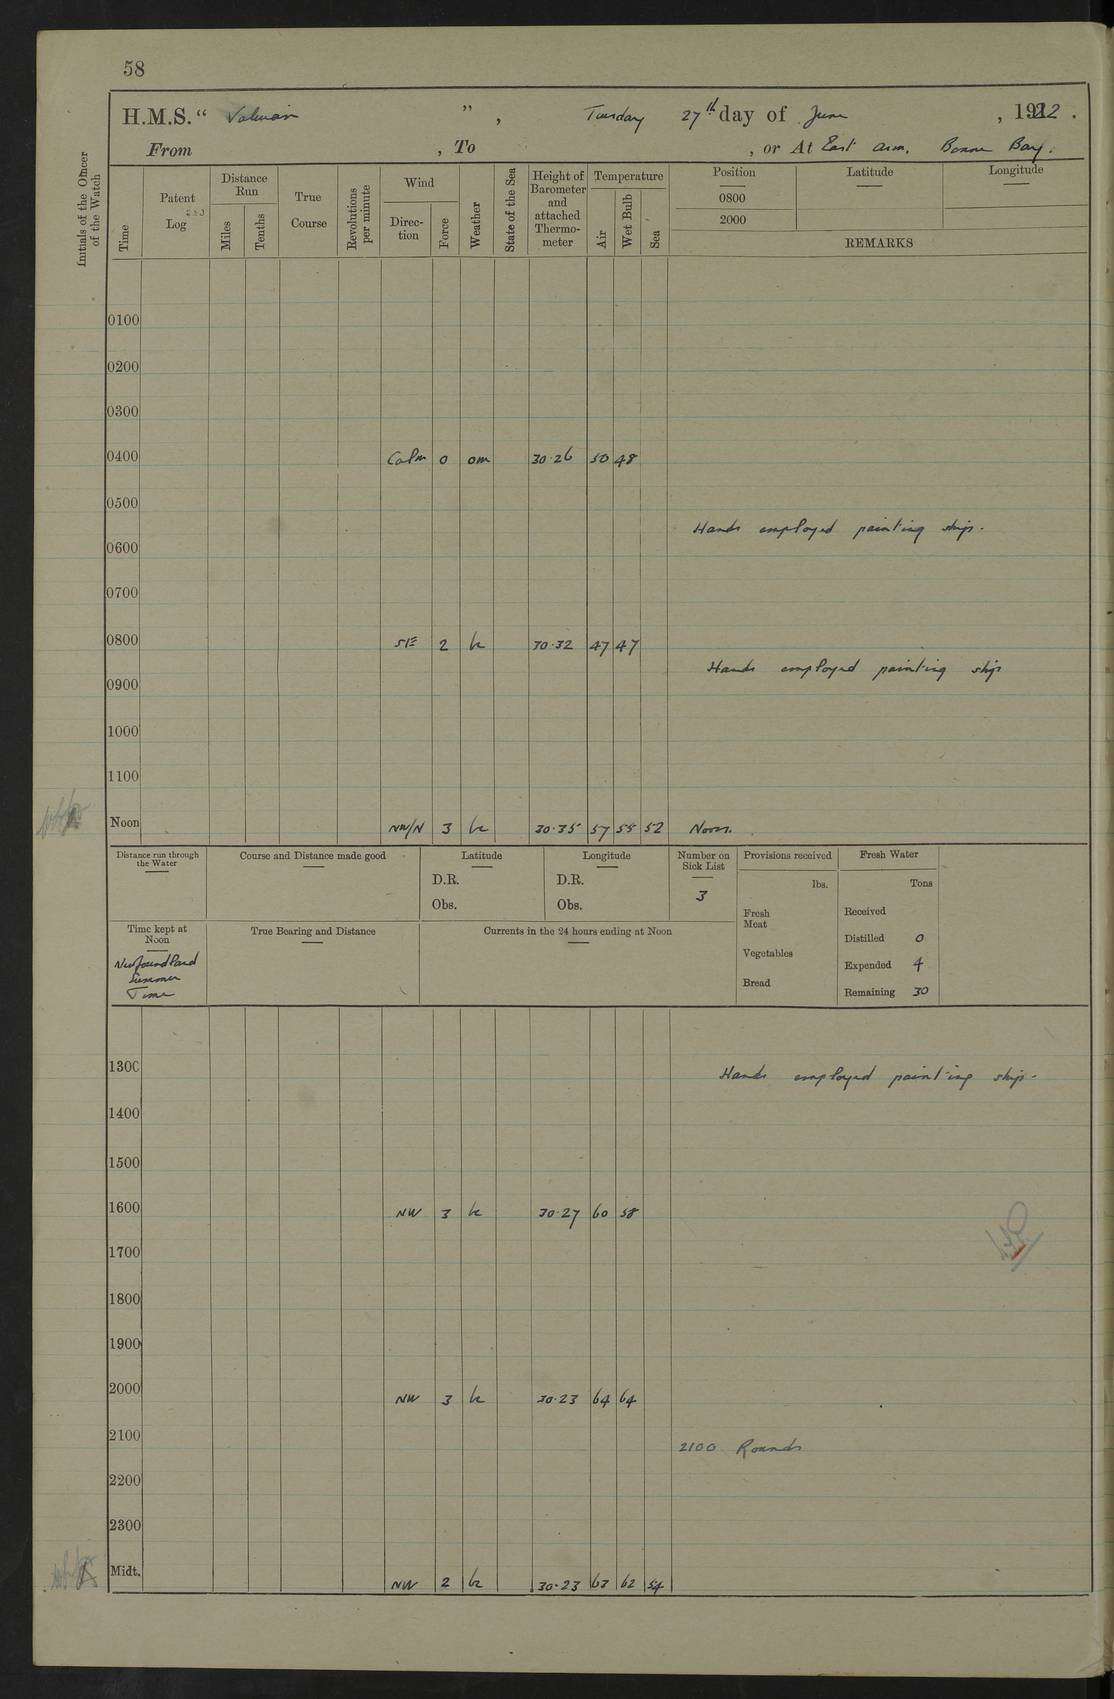 58
H.M.S. “ Valerian ”, Tuesday 27th day of June, 1922.
From , To , or At East arm, Bonne Bay.
Initials of the Officer of the Watch
Time
Patent Log
Distance Run
Miles
Tenths
True Course
Revolutions per minute
Wind
Direction
Force
Weather
State of the Sea
Height of Barometer and attached Thermometer
Temperature
Air
Wet Bulb
Sea
Position
Latitude
Longitude
0800
2000
REMARKS
0100
0200
0300
0400 Calm 0 om 30.26 50 48
0500
Hands employed painting ship.
0600
0700
0800 SE 2 bc 30.32 47 47
Hands employed painting ship
0900
1000
1100
Noon NW/N 3 bc 30.35 57 55 52 Noon.
Distance run through the Water
Course and Distance made good
Latitude
D.R.
Obs.
Longitude
D.R.
Obs.
Number on Sick List
3
Provisions received
lbs.
Fresh Meat
Vegetables
Bread
Fresh Water
Tons
Received
Distilled 0
Expended 4
Remaining 30
Time kept at Noon
Newfoundland Summer Time
True Bearing and Distance
Currents in the 24 hours ending at Noon
1300 Hands employed painting ship.
1400
1500
1600 NW 3 bc 30.27 60 58
1700
1800
1900
2000 NW 3 bc 30.23 64 64
2100 2100 Rounds
2200
2300
Midt. NW 2 bc 30.23 63 62 54